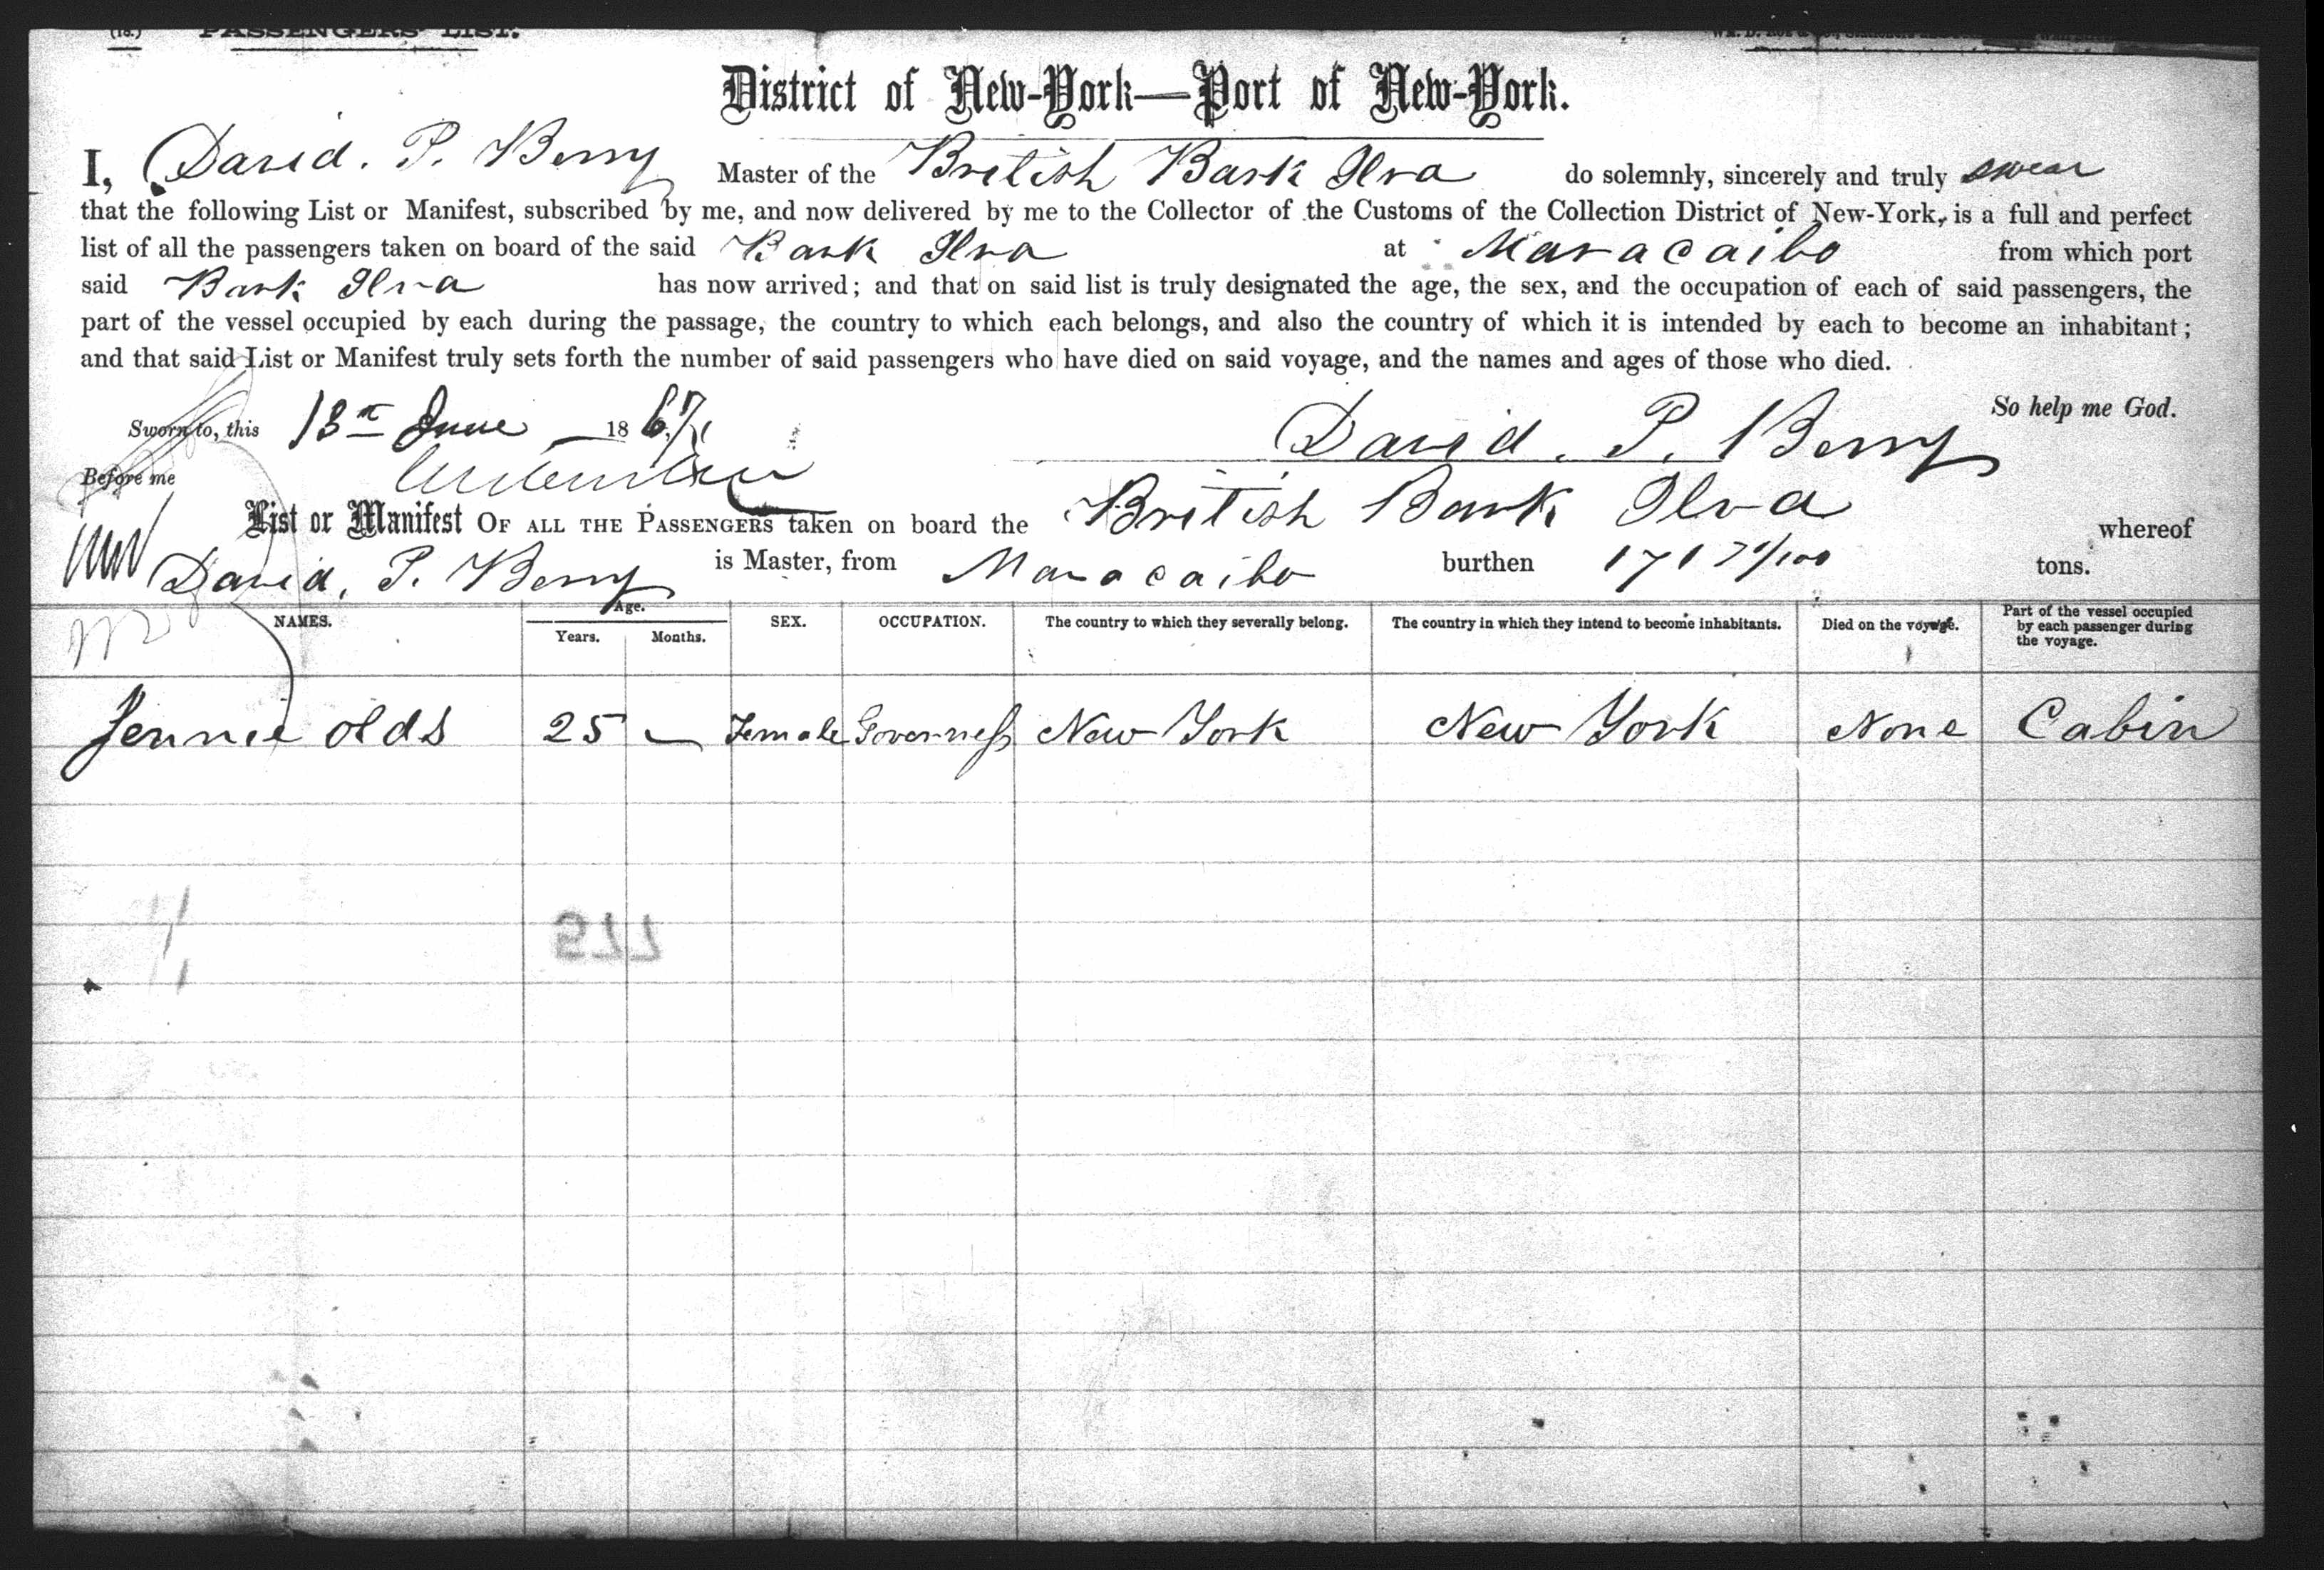 (18.) PASSENGERS' LIST.
District of New-York—Port of New-York.
I, David. P. Berry Master of the British Bark Ilva do solemnly, sincerely and truly swear
that the following List or Manifest, subscribed by me, and now delivered by me to the Collector of the Customs of the Collection District of New-York, is a full and perfect
list of all the passengers taken on board of the said Bark Ilva at Maracaibo from which port
said Bark Ilva has now arrived; and that on said list is truly designated the age, the sex, and the occupation of each of said passengers, the
part of the vessel occupied by each during the passage, the country to which each belongs, and also the country of which it is intended by each to become an inhabitant;
and that said List or Manifest truly sets forth the number of said passengers who have died on said voyage, and the names and ages of those who died.
So help me God.
Sworn to, this 13th June 1867 David. P. Berry
Before me
List or Manifest OF ALL THE PASSENGERS taken on board the British Bark Ilva whereof
David, P. Berry is Master, from Maracaibo burthen 171 71/100 tons.
NAMES. Age. Years. Months. SEX. OCCUPATION. The country to which they severally belong. The country in which they intend to become inhabitants. Died on the voyage. Part of the vessel occupied by each passenger during the voyage.
Jennie olds 25 — Female Governess New York New York None Cabin